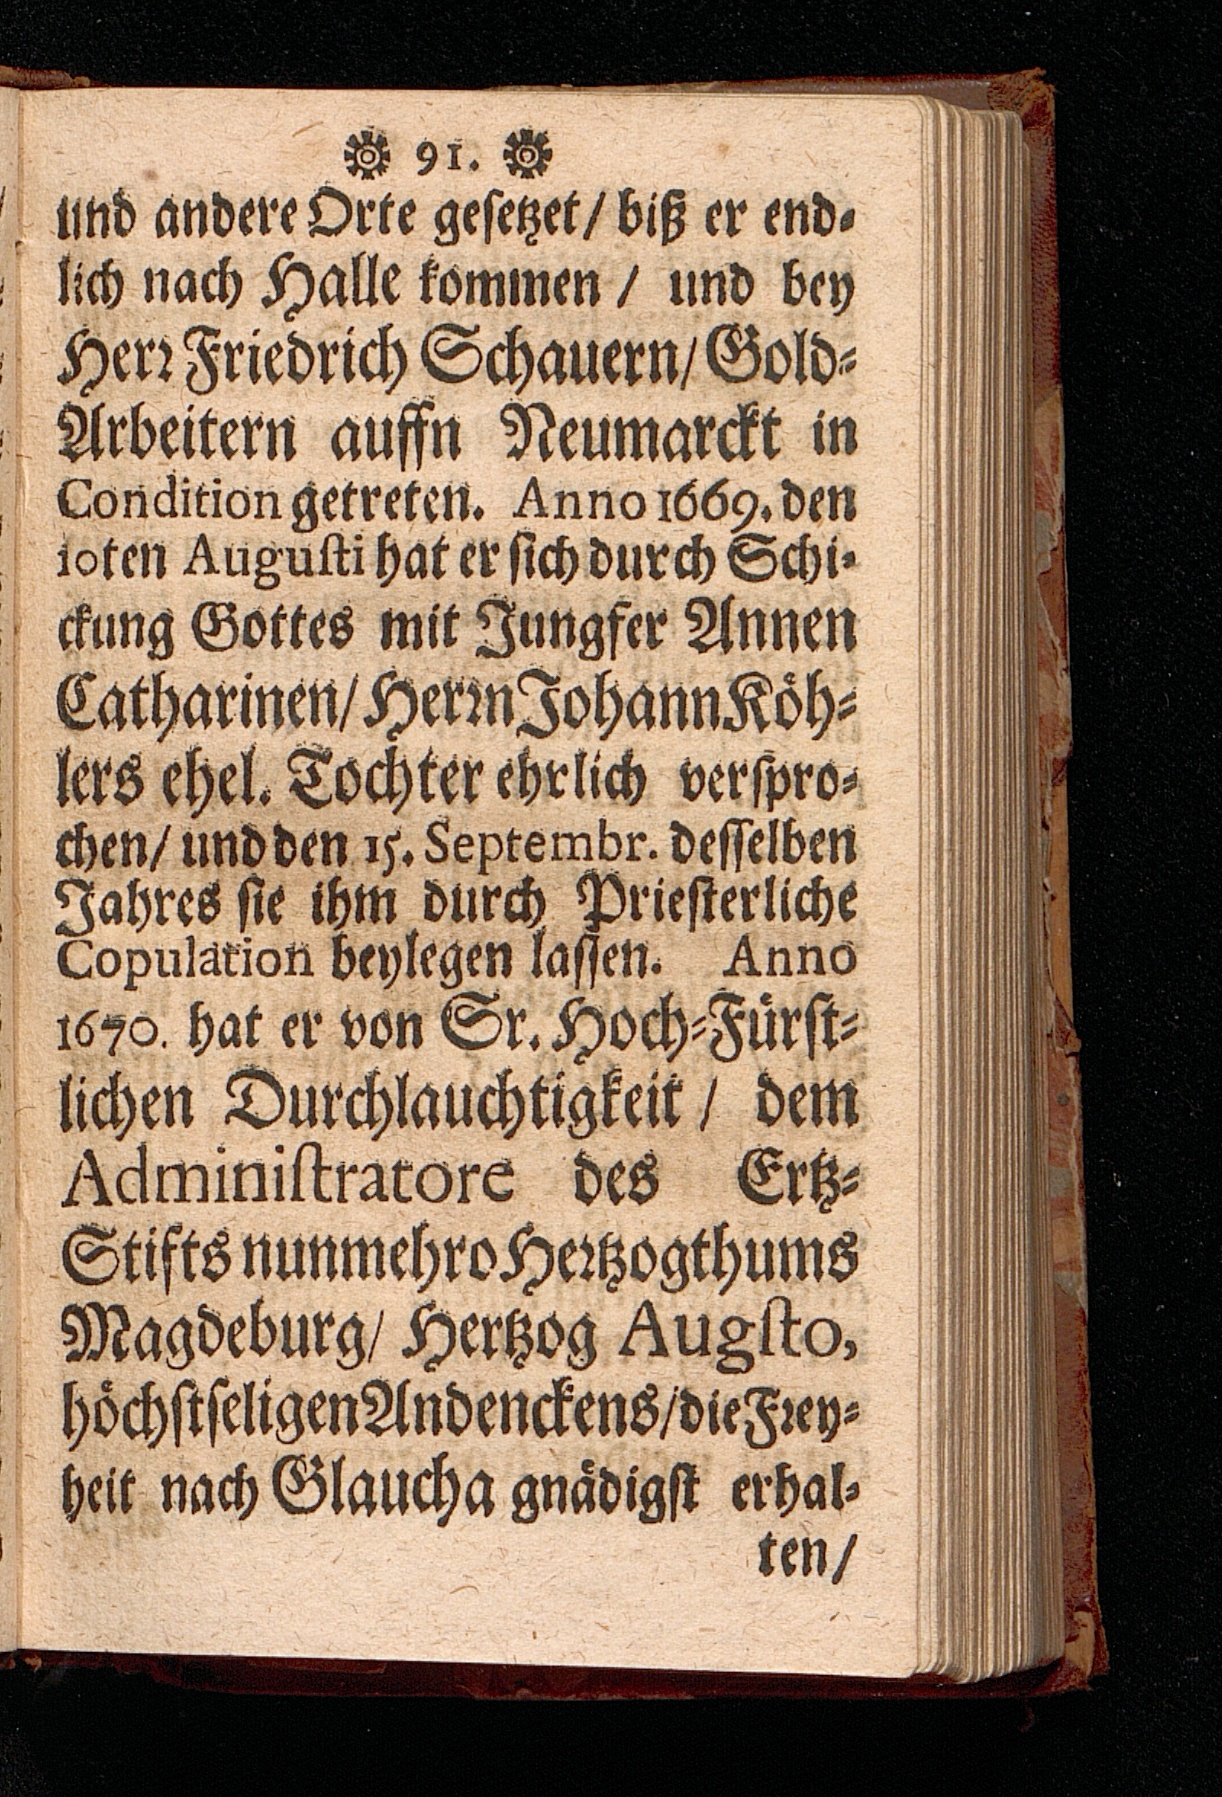 91.
und andere Orte gesetzet/ biß er end-
lich nach Halle kommen / und bey
Herr Friedrich Schauern/ Gold-
Arbeitern auffn Neumarckt in
Condition getreten. Anno 1669. den
10ten Augusti hat er sich durch Schi-
ckung Gottes mit Jungfer Annen
Catharinen/ Herrn Johann Köh-
lers ehel. Tochter ehrlich verspro-
chen/ und den 15. Septembr. desselben
Jahres sie ihm durch Priesterliche
Copulation beylegen lassen. Anno
1670. hat er von Sr. Hoch-Fürst-
lichen Durchlauchtigkeit / dem
Administratore des Ertz-
Stifts nunmehro Hertzogthums
Magdeburg/ Hertzog Augsto,
höchstseligen Andenckens/ die Frey-
heit nach Glaucha gnädigst erhal-
ten/